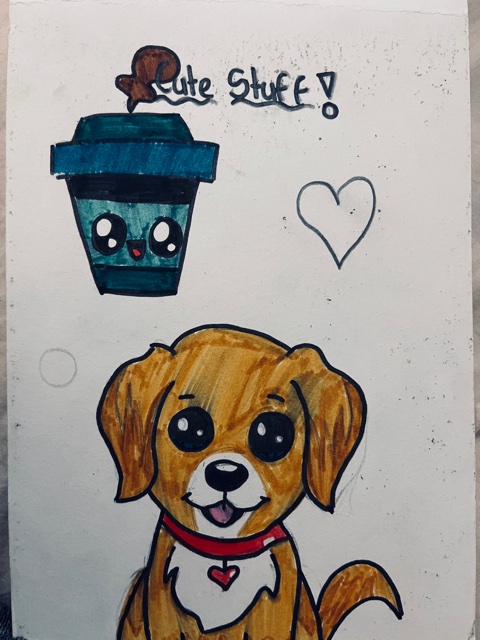 Cute Stuff!